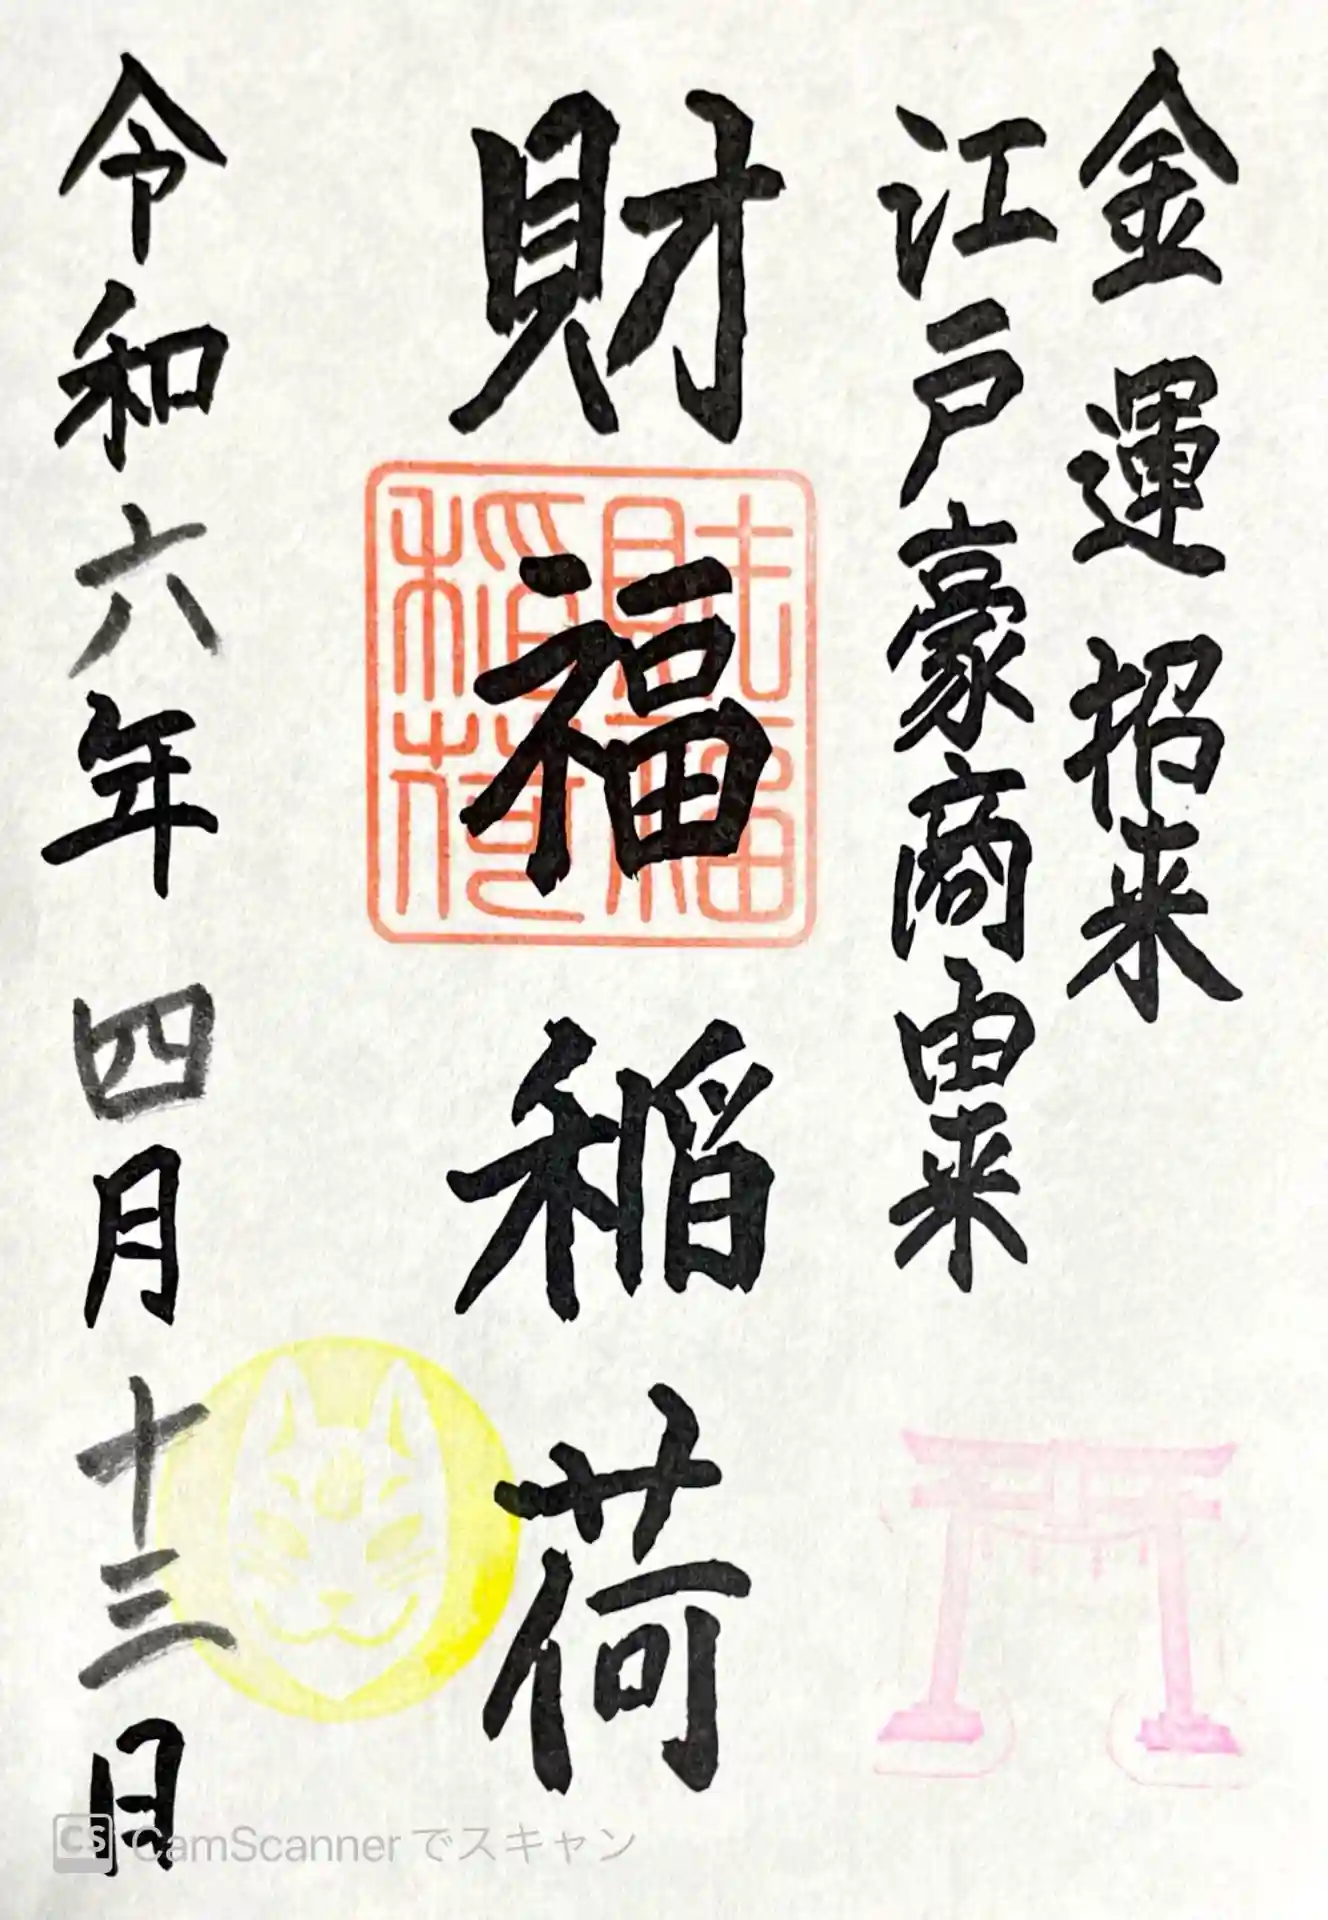 金運招来
江戸豪商由来
財福稲荷
財福
稲荷
令和六年四月十三日
CS CamScannerでスキャン